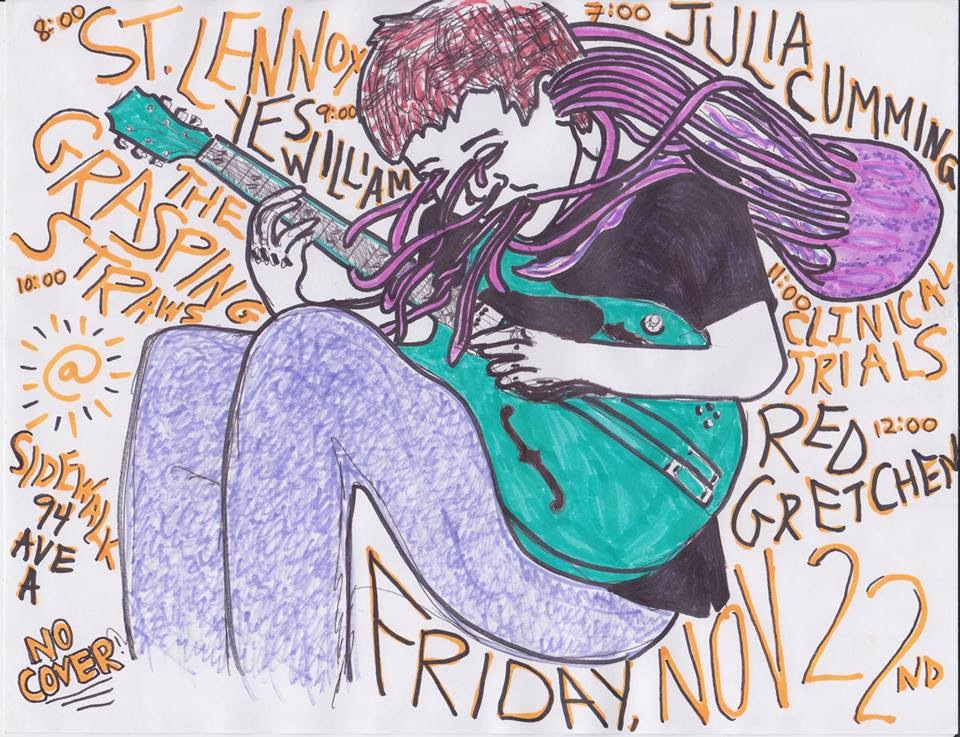 8:00
ST. LENNOX
7:00
JULIA
CUMMING
YES
9:00
WILLIAM
THE
GRASPING
STRAWS
10:00
11:00
CLINICAL
TRIALS
RED
12:00
GRETCHEN
@
SIDEWALK
94
AVE
A
NO
COVER
FRIDAY, NOV 22ND